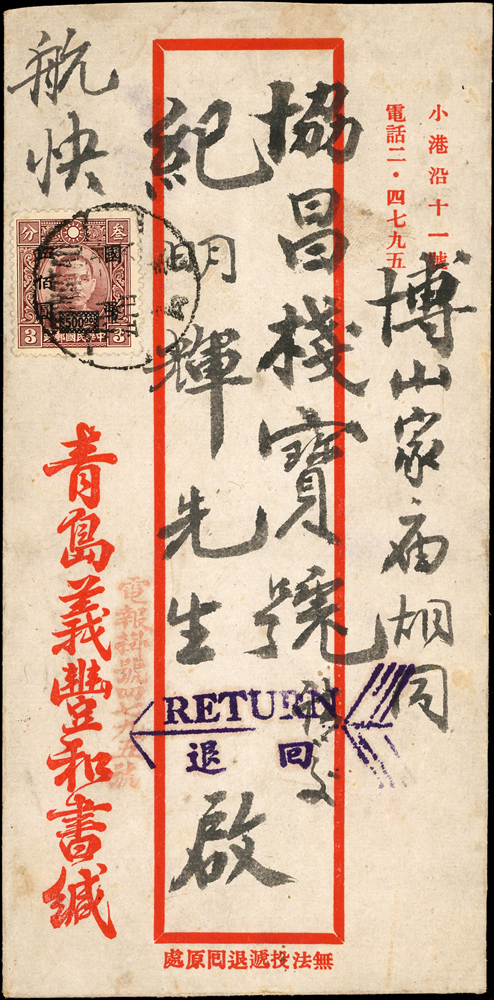 小港沿十一號
電話二·四七九五
博山家庙胡同
協昌棧寶號
紀明輝先生 啟
航快
叁 分
國幣
伍佰圓
500
3 3
RETURN
退回
電報掛號四七九五號
青島義豐和書緘
無法投遞退回原處